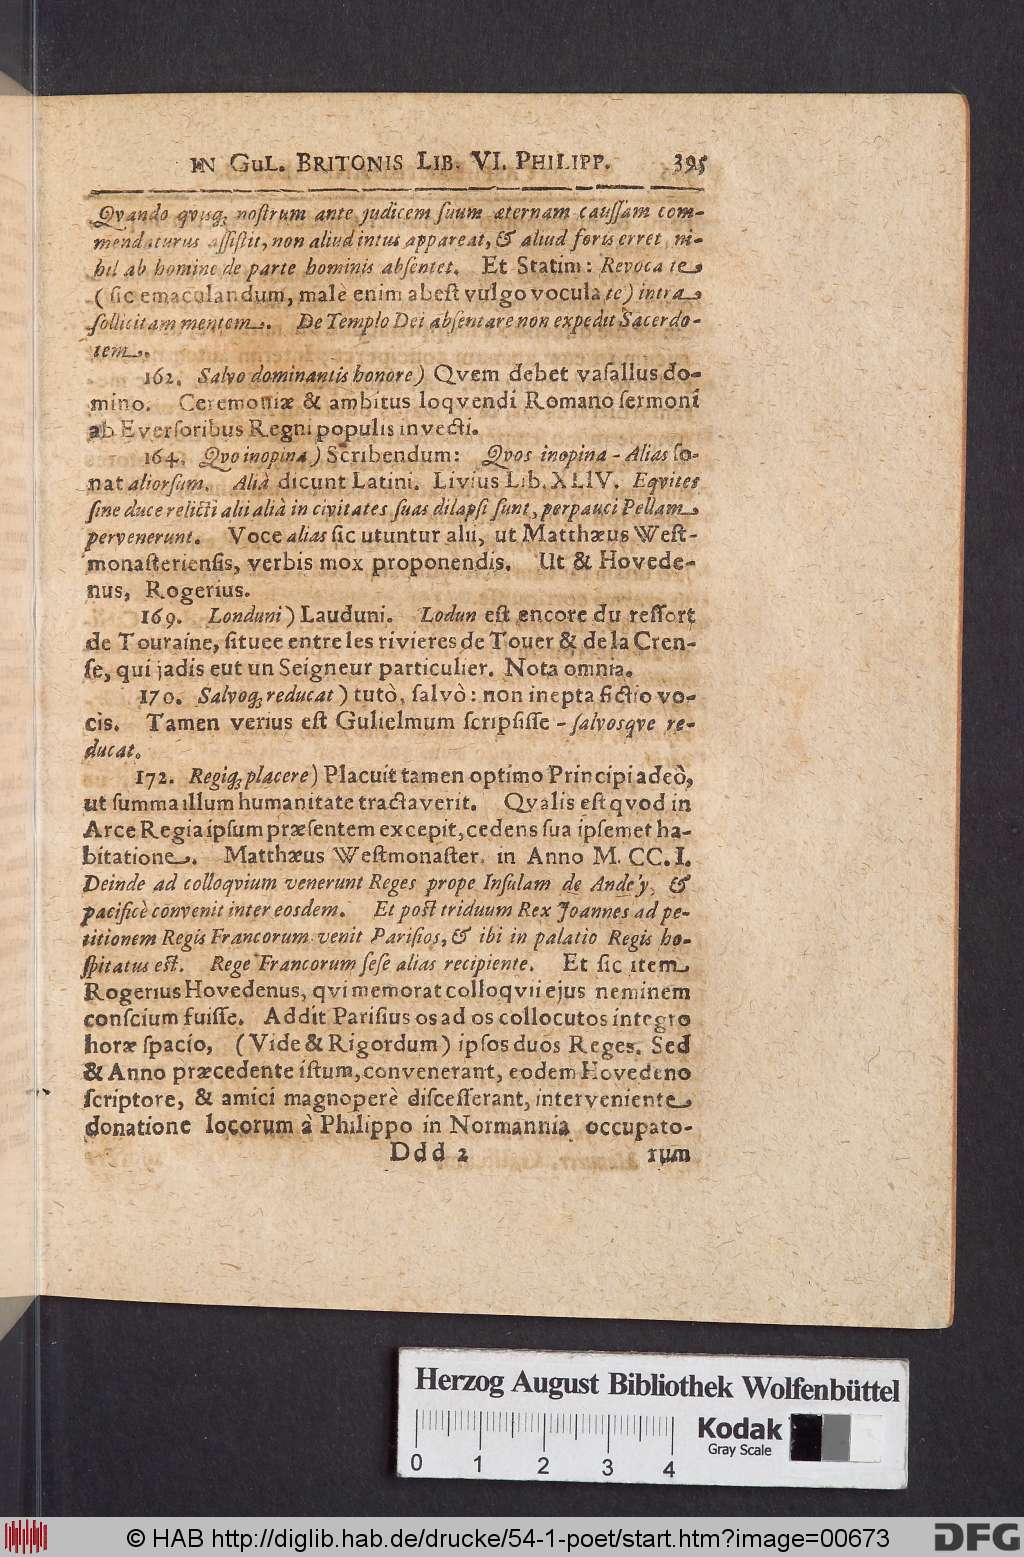 IN GUL. BRITONIS LIB. VI. PHILIPP. 395
Qvando qvisq; nostrum ante judicem suum æternam caussam com-
mendaturus assistit, non aliud intus appareat, & aliud foris erret, ni-
hil ab homine de parte hominis absentet. Et Statim: Revoca te
( sic emaculandum, malè enim abest vulgo vocula te) intra
sollicitam mentem. De Templo Dei absentare non expedit Sacerdo-
tem.
162. Salvo dominantis honore) Qvem debet vasallus do-
mino. Ceremoniæ & ambitus loqvendi Romano sermoni
ab Eversoribus Regni populis invecti.
164. Qvo inopina) Scribendum: Qvos inopina - Alias so-
nat aliorsum. Alià dicunt Latini. Livius Lib. XLIV. Eqvites
sine duce relicti alii alià in civitates suas dilapsi sunt, perpauci Pellam
pervenerunt. Voce alias sic utuntur alii, ut Matthæus West-
monasteriensis, verbis mox proponendis. Ut & Hovede-
nus, Rogerius.
169. Londuni) Lauduni. Lodun est encore du ressort
de Touraine, situee entre les rivieres de Touer & de la Cren-
se, qui jadis eut un Seigneur particulier. Nota omnia.
170. Salvoq; reducat) tutò, salvò: non inepta fictio vo-
cis. Tamen verius est Gulielmum scripsisse - salvosqve re-
ducat.
172. Regiq; placere) Placuit tamen optimo Principi adeò,
ut summa illum humanitate tractaverit. Qvalis est qvod in
Arce Regia ipsum præsentem excepit, cedens sua ipsemet ha-
bitatione. Matthæus Westmonaster. in Anno M. CC. I.
Deinde ad colloqvium venerunt Reges prope Insulam deAnde'y, &
pacificè convenit inter eosdem. Et post triduum Rex Joannes ad pe-
titionem Regis Francorum venit Parisios, & ibi in palatio Regis ho-
spitatus est. Rege Francorum sese alias recipiente. Et sic item
Rogerius Hovedenus, qvi memorat colloqvii ejus neminem
conscium fuisse. Addit Parisius os ad os collocutos integro
horæ spacio, ( Vide & Rigordum ) ipsos duos Reges. Sed
& Anno præcedente istum, convenerant, eodem Hovedeno
scriptore, & amici magnoperè discesserant, interveniente
donatione locorum à Philippo in Normannia occupato-
Ddd 2 rum
Herzog August Bibliothek Wolfenbüttel
Kodak
Gray Scale
0 1 2 3 4
© HAB http://diglib.hab.de/drucke/54-1-poet/start.htm?image=00673 DFG